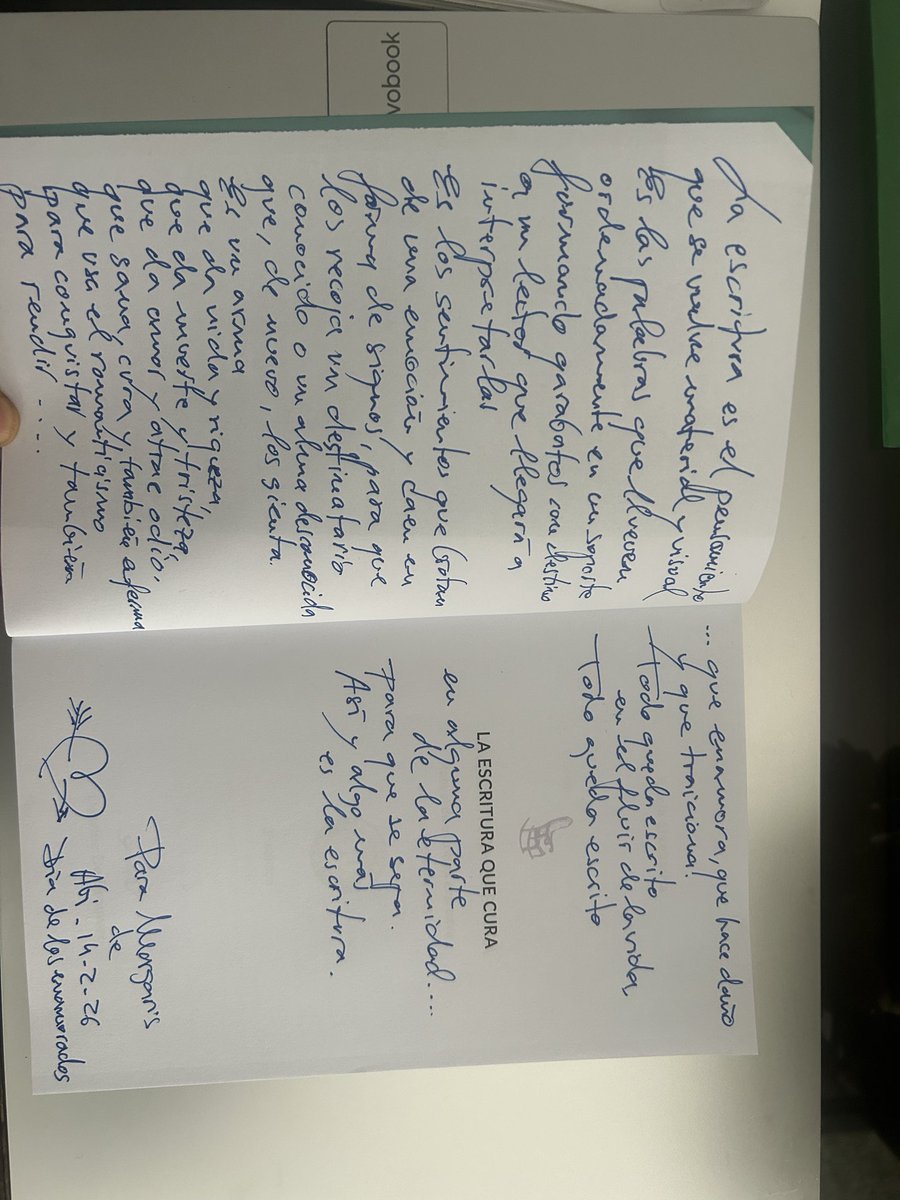 vobook
La escritura es el pensamiento
que se vuelve material y visual
Es las palabras que llueven
ordenadamente en un soporte
formando garabatos con destino
a un lector que llegará a
interpretarlas
Es los sentimientos que brotan
de una emoción y caen en
forma de signos, para que
los recoja un destinatario
conocido o un alma desconocida
que, de nuevo, los sienta.
Es un arma
que da vida y riqueza,
que da muerte y tristeza,
que da amor y atrae odio.
que sana, cura y también enferma
que usa el romanticismo
para conquistar y también
para rendir....
... que enamora, que hace daño
y que traiciona!
Todo queda escrito
en el fluir de la vida,
Todo queda escrito
LA ESCRITURA QUE CURA
en alguna parte
de la eternidad....
para que se sepa.
Así y algo más
es la escritura.
Para Margaris
de
Abi - 14-2-26
Día de los enamorados